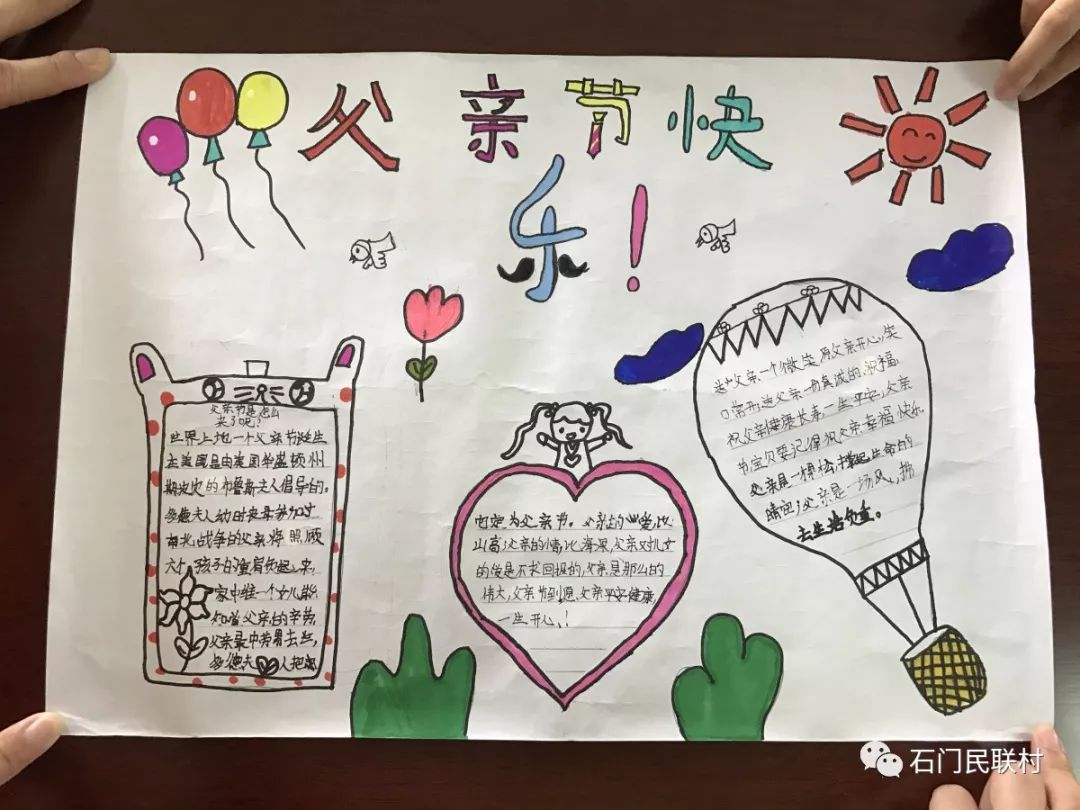 父亲节快
乐！
父亲节是怎么
来了吧？
世界上地一个父亲节诞生
在美国是由美国华盛顿州
的布鲁斯夫人倡导的。
多德夫人幼时丧母参加过
南北战争的父亲将照顾
六个孩子的重肩负起来，
家中唯一个女儿能
知道父亲的辛劳，
父亲最中劳累去些，
多德夫人把
定为父亲节。父亲的爱，比
山高，父亲的情，比海深，父亲对儿女
的爱是不求回报的，父亲是那么的
伟大，父亲节到了愿父亲平安健康，
一生开心！
送父亲一个微笑，愿父亲开心，笑
口常开，送父亲一份真诚的祝福，
祝父亲健康长寿一生平安，父亲
节宝贝要记得祝父亲幸福快乐
父亲是一棵松，撑起生命的
晴空，父亲是一场风，拂
去生活负重。
石门民联村